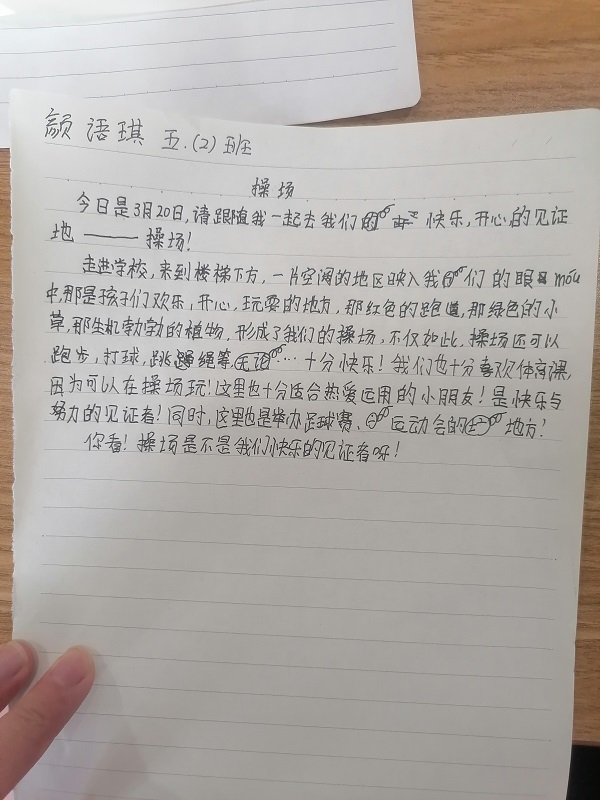 颜语琪 五.(2)班
操场
今日是3月20日,请跟随我一起去我们 快乐,开心的见证
地——操场!
走进学校,来到楼梯下方,一片空阔的地区映入我们的眼móu
中,那是孩子们欢乐,开心,玩耍的地方,那红色的跑道,那绿色的小
草,那生机勃勃的植物,形成了我们的操场,不仅如此,操场还可以
跑步,打球,跳绳等…十分快乐!我们也十分喜欢体育课,
因为可以在操场玩!这里也十分适合热爱运用的小朋友!是快乐与
努力的见证者!同时,这里也是举办足球赛、运动会的地方!
你看!操场是不是我们快乐的见证者呀!